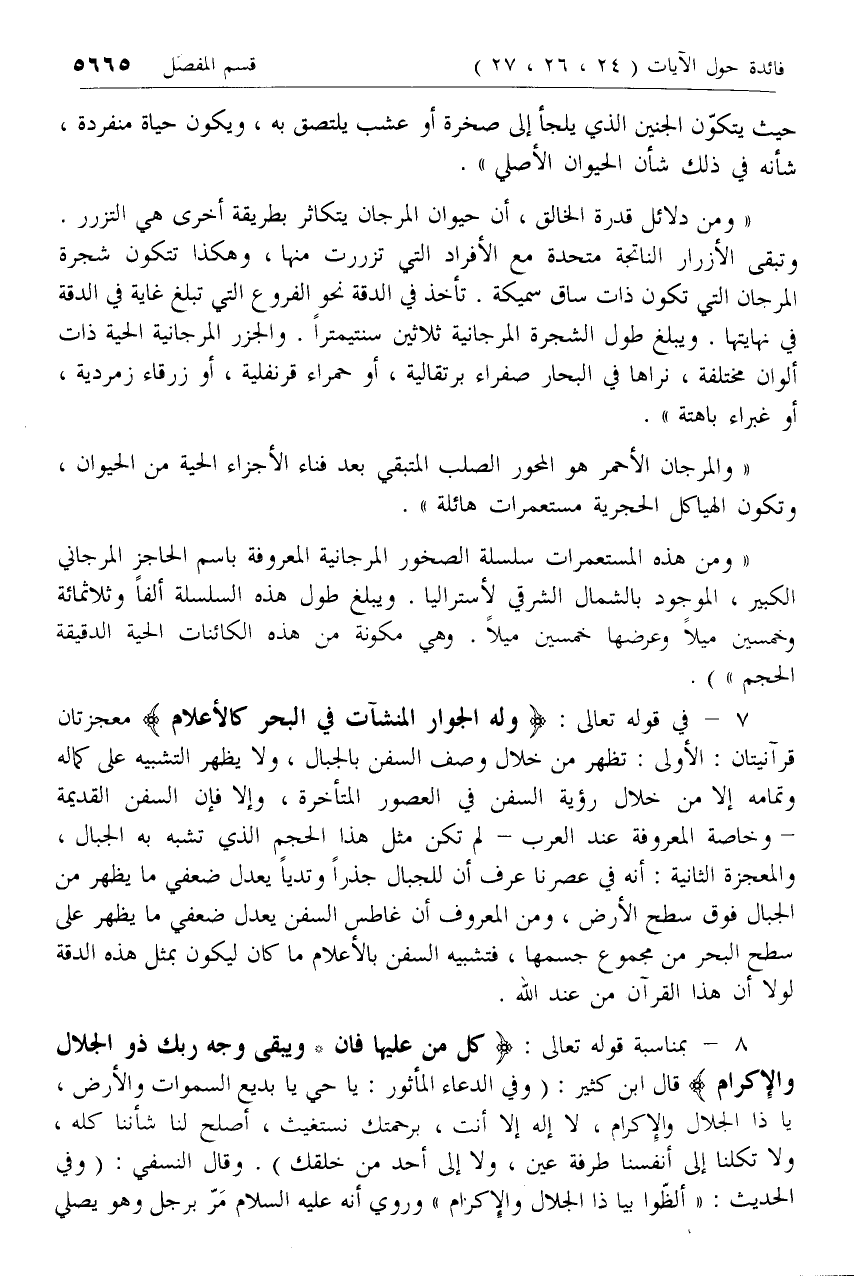 فائدة حول الآيات ( ٢٤ ، ٢٦ ، ٢٧ ) قسم المفصّل ٥٦٦٥
حيث يتكوّن الجنين الذي يلجأ إلى صخرة أو عشب يلتصق به ، ويكون حياة منفردة ،
شأنه في ذلك شأن الحيوان الأصلي » .
« ومن دلائل قدرة الخالق ، أن حيوان المرجان يتكاثر بطريقة أخرى هي التزرر .
وتبقى الأزرار الناتجة متحدة مع الأفراد التي تزررت منها ، وهكذا تتكون شجرة
المرجان التي تكون ذات ساق سميكة . تأخذ في الدقة نحو الفروع التي تبلغ غاية في الدقة
في نهايتها . ويبلغ طول الشجرة المرجانية ثلاثين سنتيمتراً . والجزر المرجانية الحية ذات
ألوان مختلفة ، نراها في البحار صفراء برتقالية ، أو حمراء قرنفلية ، أو زرقاء زمردية ،
أو غبراء باهتة » .
« والمرجان الأحمر هو المحور الصلب المتبقي بعد فناء الأجزاء الحية من الحيوان ،
وتكون الهياكل الحجرية مستعمرات هائلة » .
« ومن هذه المستعمرات سلسلة الصخور المرجانية المعروفة باسم الحاجز المرجاني
الكبير ، الموجود بالشمال الشرقي لأستراليا . ويبلغ طول هذه السلسلة ألفاً وثلاثمائة
وخمسين ميلاً وعرضها خمسين ميلاً . وهي مكونة من هذه الكائنات الحية الدقيقة
الحجم » ) .
٧ - في قوله تعالى : ﴿ وله الجوار المنشآت في البحر كالأعلام ﴾ معجزتان
قرآنيتان : الأولى : تظهر من خلال وصف السفن بالجبال ، ولا يظهر التشبيه على كماله
وتمامه إلا من خلال رؤية السفن في العصور المتأخرة ، وإلا فإن السفن القديمة
- وخاصة المعروفة عند العرب - لم تكن مثل هذا الحجم الذي تشبه به الجبال ،
والمعجزة الثانية : أنه في عصرنا عرف أن للجبال جذراً وتدياً يعدل ضعفي ما يظهر من
الجبال فوق سطح الأرض ، ومن المعروف أن غاطس السفن يعدل ضعفي ما يظهر على
سطح البحر من مجموع جسمها ، فتشبيه السفن بالأعلام ما كان ليكون بمثل هذه الدقة
لولا أن هذا القرآن من عند الله .
٨ - بمناسبة قوله تعالى : ﴿ كل من عليها فان * ويبقى وجه ربك ذو الجلال
والإكرام ﴾ قال ابن كثير : ( وفي الدعاء المأثور : يا حي يا بديع السموات والأرض ،
يا ذا الجلال والإكرام ، لا إله إلا أنت ، برحمتك نستغيث ، أصلح لنا شأننا كله ،
ولا تكلنا إلى أنفسنا طرفة عين ، ولا إلى أحد من خلقك ) . وقال النسفي : ( وفي
الحديث : « ألظّوا بيا ذا الجلال والإكرام » وروي أنه عليه السلام مَرّ برجل وهو يصلي